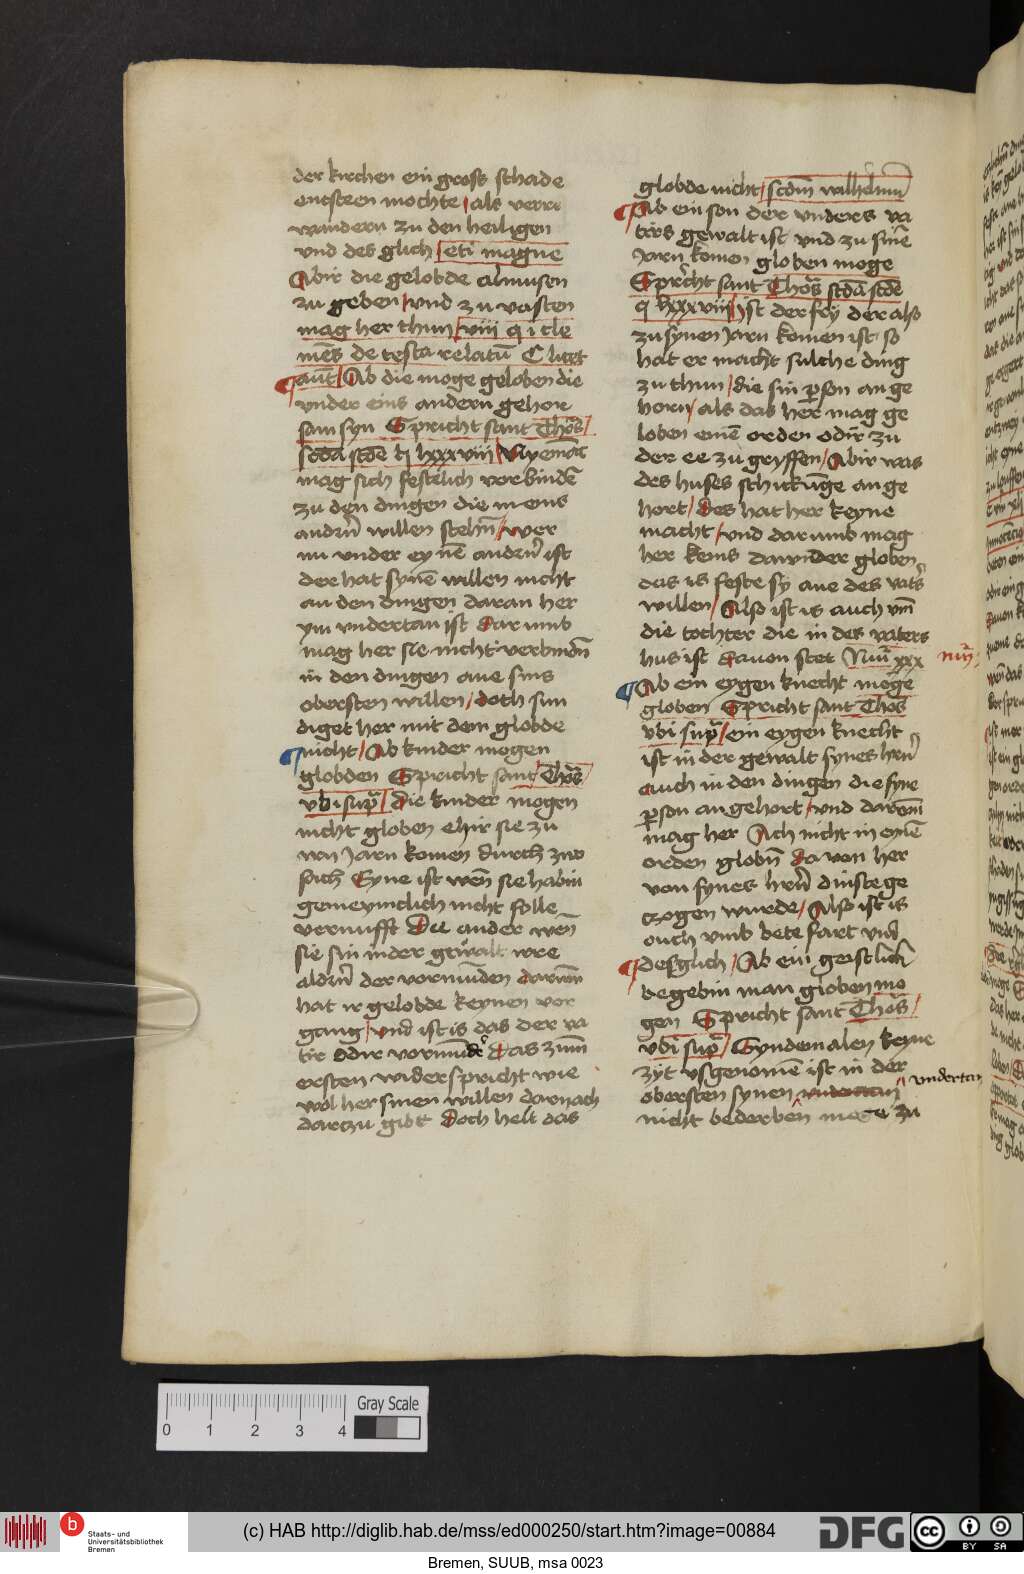 der kirchen ein gross schade
entsteen mochte / als verre
wandern zu den heiligen
und des glich / eti magne
Abir die gelobde almusen
zu geben / und zu vasten
mag her thun / viii q i cle
mēs de testa relatū C licet
aut / Ab die moge geloben die
vnder eins andern gehor
sam syn Spricht sant Thoͤs /
scd'a scde q lxxxviii / Nyemāt
mag sich festlich vorbindē
zu den dingen die in eins
andrn̄ willen stehn̄ / wer
nu vnder eynē andrn̄ ist
der hat synē willen nicht
an den dingen daran her
ym vndertan ist dar umb
mag her sie nicht verbindn̄
in den dingen ane sins
obersten willen / doch sun
diget her mit dem globde
nicht / Ab kinder mogen
globden Spricht sant Thoͤs /
vbi supͣ / die kinder mogen
nicht globen ehir sie zu
ren jarn komen durch zwo
sach Eyne ist wen̄ sie habin
gemeynclich nicht folle
vernufft Die ander wen̄
sie sin in der gewalt wre
aldrn̄ der vormūden darum̄
hat ir gelobde keynen vor
gang / und ist is das der va
tir odir vormūdͤr das zum̄
ersten widerspricht wie
wol her sinen willen darnach
darczu gibt Doch helt das
globde nicht / scdm wilhelmū
Ab ein son der vnders va
tirs gewalt ist und zu sinē
Jarn komen globen moge
Spricht sant Thoͤs scdā scde
q lxxxviii / ist der fry der als
zu synen Jarn komen ist so
hat er macht sulche ding
zu thun / die sin ꝑson an ge
horn / als das her mag ge
loben einē orden odir zu
der ee zu gryffen / Abir was
des huses schickūge an ge
hort / des hat her keyne
macht / und dar umb mag
her keins dawider globen
das is feste sy ane des vatͤs
willen / Also ist is auch vm̄
die tochter die in des vaters
hus ist davon stet Nuͣ xxx
Nuͣ
Ab ein eygen knecht moge
globen Spricht sant Thoͤs
vbi supͣ / ein eygen knecht
ist in der gewalt synes hrn̄
auch in den dingen die syne
ꝑson an gehort / und darum̄
mag her Ach nicht in eynē
orden globn̄ da von her
von synes hrn̄ dinste ge
czogen wurde / Also ist is
ouch vmb bete fart und
desglich / Ab ein geistlich
begebin man globen mo
gen Spricht sant Thoͤs /
vbi supͣ / Syndemalen keyne
zyt vsgenomē ist in der
obersten synen vndertan
vndertan
nicht bederben moge zu
0 1 2 3 4
Gray Scale
b
Staats- und
Universitätsbibliothek
Bremen
(c) HAB http://diglib.hab.de/mss/ed000250/start.htm?image=00884
DFG
cc
BY SA
Bremen, SUUB, msa 0023